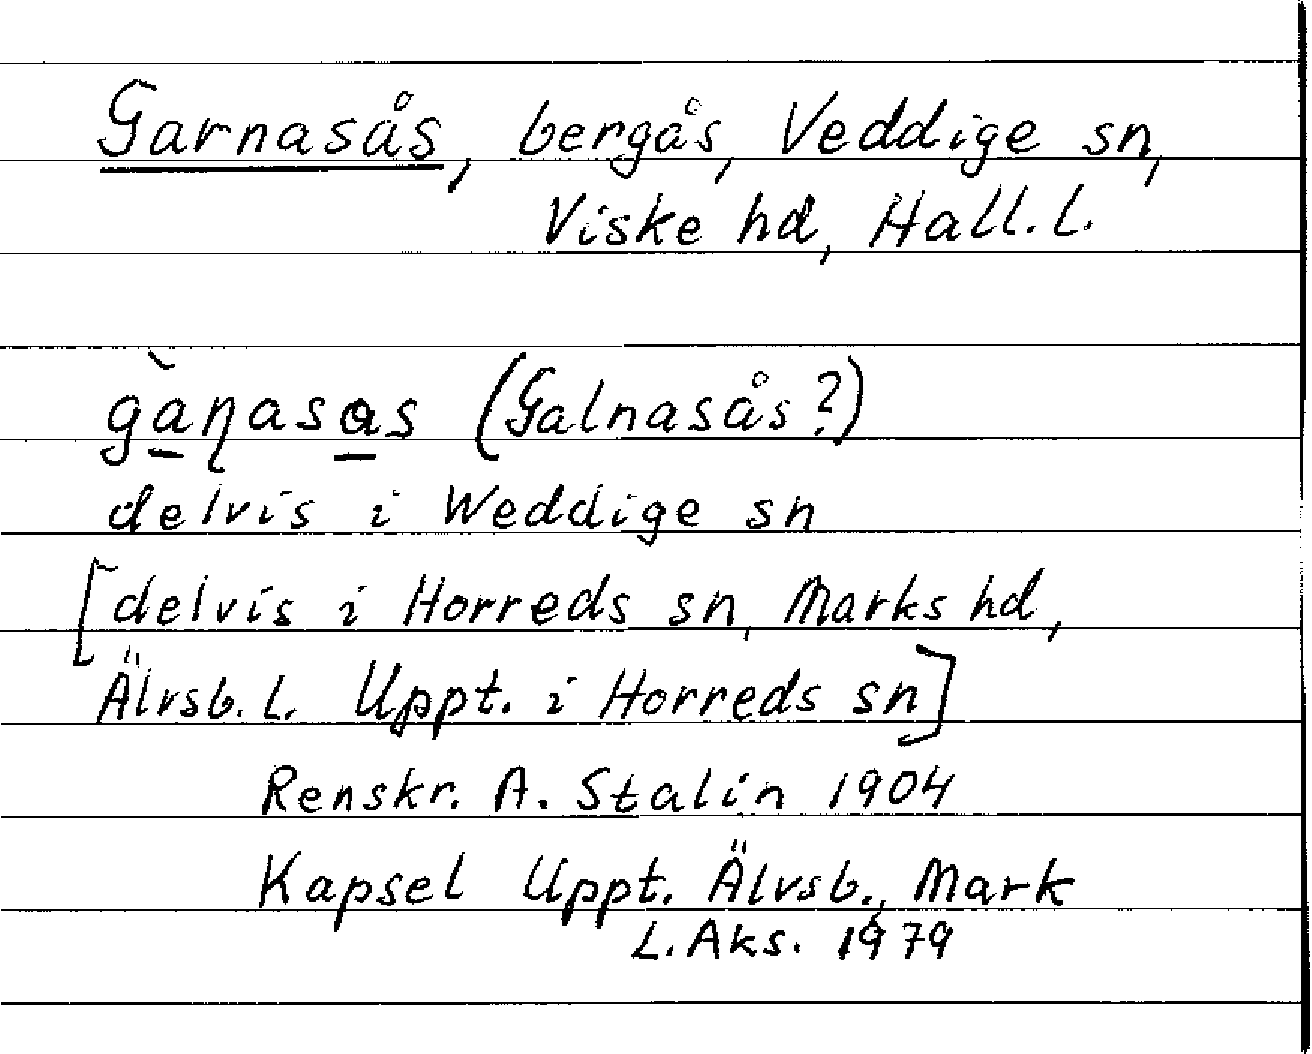 Garnasås, bergås, Veddige sn,
Viske hd, Hall. l.
gàɳasɑs (Galnasås?)
delvis i Weddige sn
[delvis i Horreds sn, Marks hd,
Älvsb. l. Uppt. i Horreds sn]
Renskr. A. Stalin 1904
Kapsel Uppt. Älvsb., Mark
L. Aks. 1979